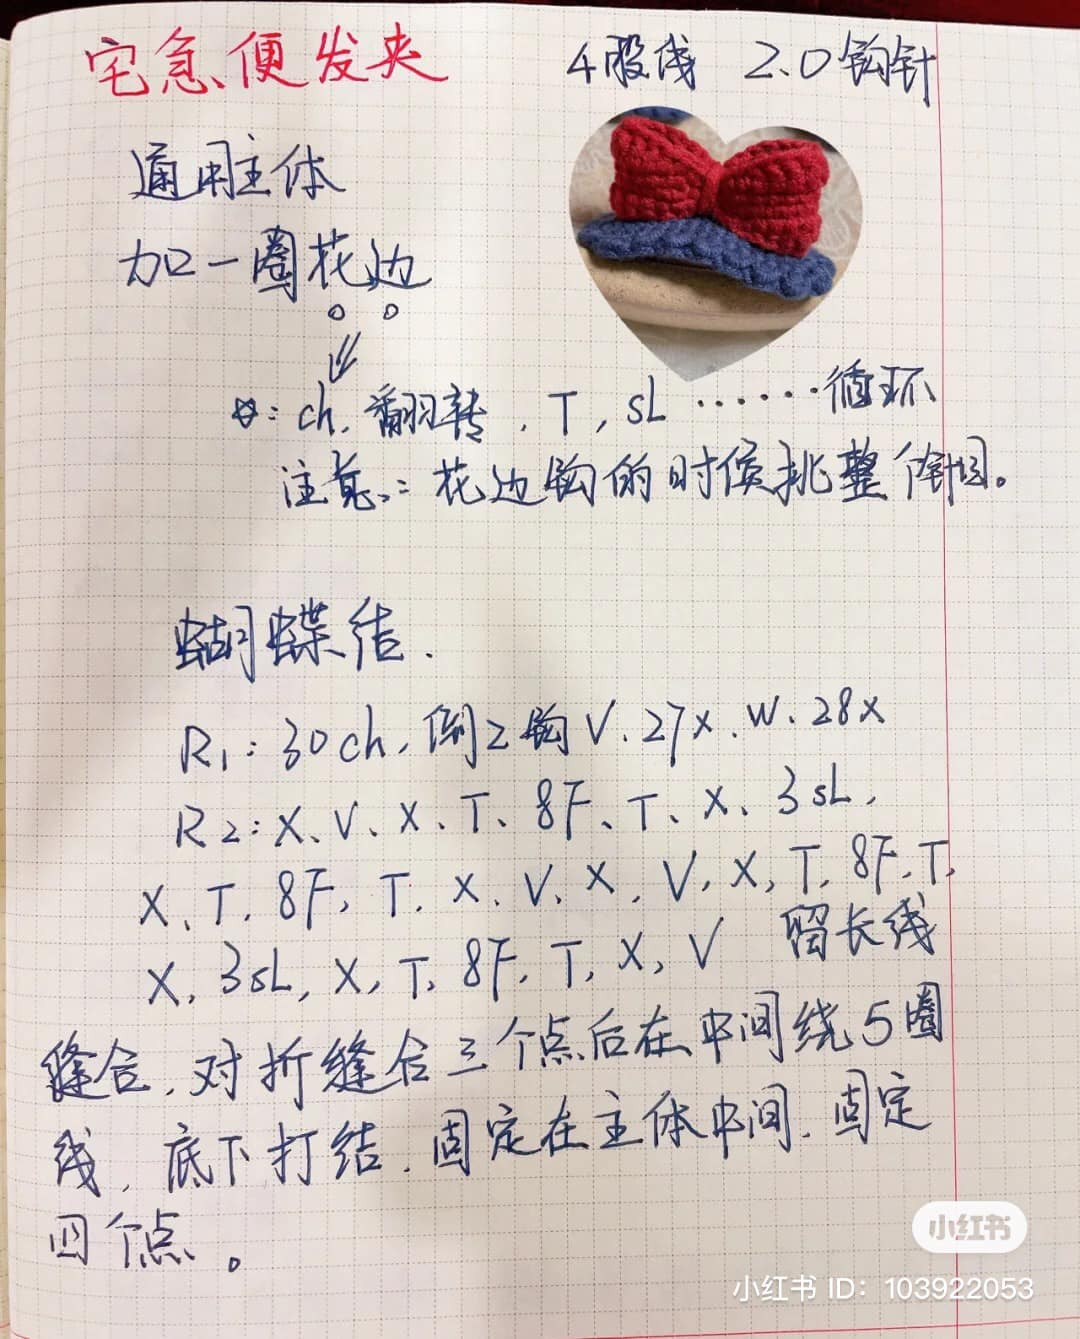 宅急便发夹
4股线 2.0钩针
通用主体
加一圈花边
ch, 翻转, T, sL ······循环
注意: 花边钩的时候挑整个针目。
蝴蝶结.
R1: 30ch, 倒2钩V、27X、W、28X
R2: X、V、X、T、8F、T、X、3sL,
X、T, 8F, T, X、V、X, V, X, T, 8F, T,
X, 3sL, X, T, 8F, T, X, V 留长线
缝合, 对折缝合三个点后在中间绕5圈
线, 底下打结, 固定在主体中间, 固定
四个点。
小红书
小红书 ID: 103922053